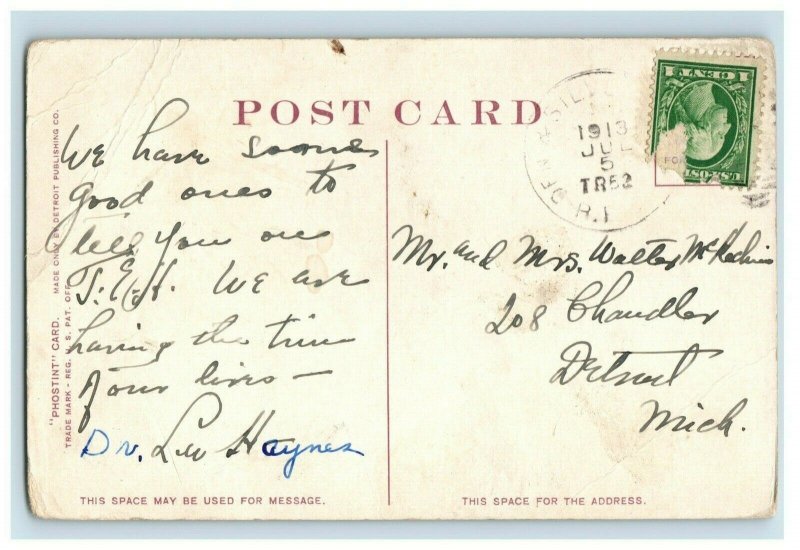 POST CARD
"PHOSTINT" CARD. MADE ONLY BY DETROIT PUBLISHING CO.
TRADE MARK - REG. U. S. PAT. OFF.
We have some
good ones to
tell you on
J.E.H. We are
having the time
of our lives —
Dr. Lew Haynes
THIS SPACE MAY BE USED FOR MESSAGE.
1913
JUL
5
TR52
R.I
Mr. and Mrs. Walter
208 Chandler
Detroit
Mich.
THIS SPACE FOR THE ADDRESS.